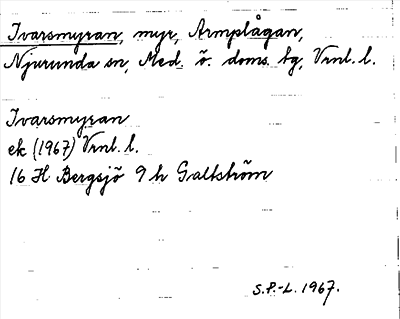 Ivarsmyran, myr, Armplågan,
Njurunda sn, Med. ö. doms. hg, Vrnl. l.
Ivarsmyran
ek (1967) Vrnl. l.
16 H Bergsjö 9 h Galtström
S.P.-L. 1967.